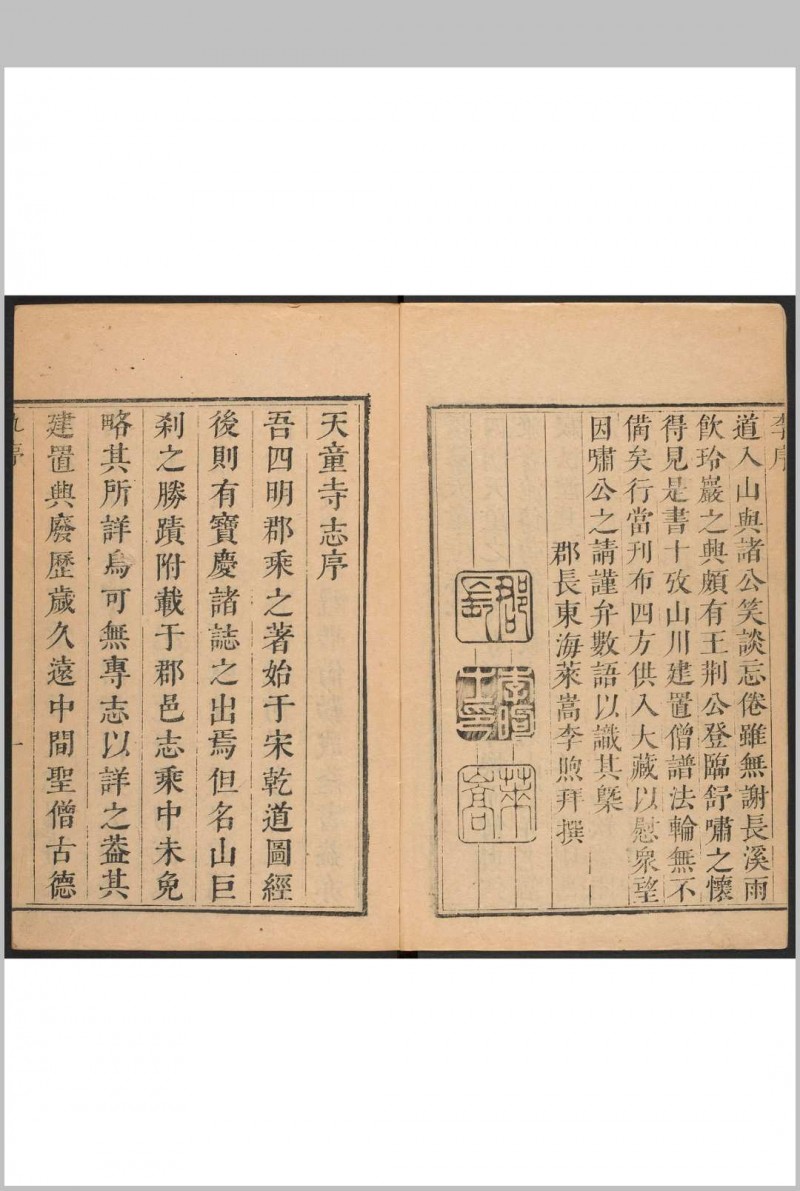 李序
道入山與諸公笑談忘倦雖無謝長溪雨
飲玲巖之興頗有王荆公登臨舒嘯之懷
得見是書十攷山川建置僧譜法輪無不
備矣行當刊布四方供入大藏以慰衆望
因嘯公之請謹弁數語以識其槩
郡長東海萊嵩李煦拜撰
郡長
李煦之印
萊嵩
天童寺志序
吾四明郡乘之著始于宋乾道圖經
後則有寶慶諸誌之出焉但名山巨
刹之勝蹟附載于郡邑志乘中未免
略其所詳烏可無專志以詳之葢其
建置興廢歷歲久遠中間聖僧古德
序
一